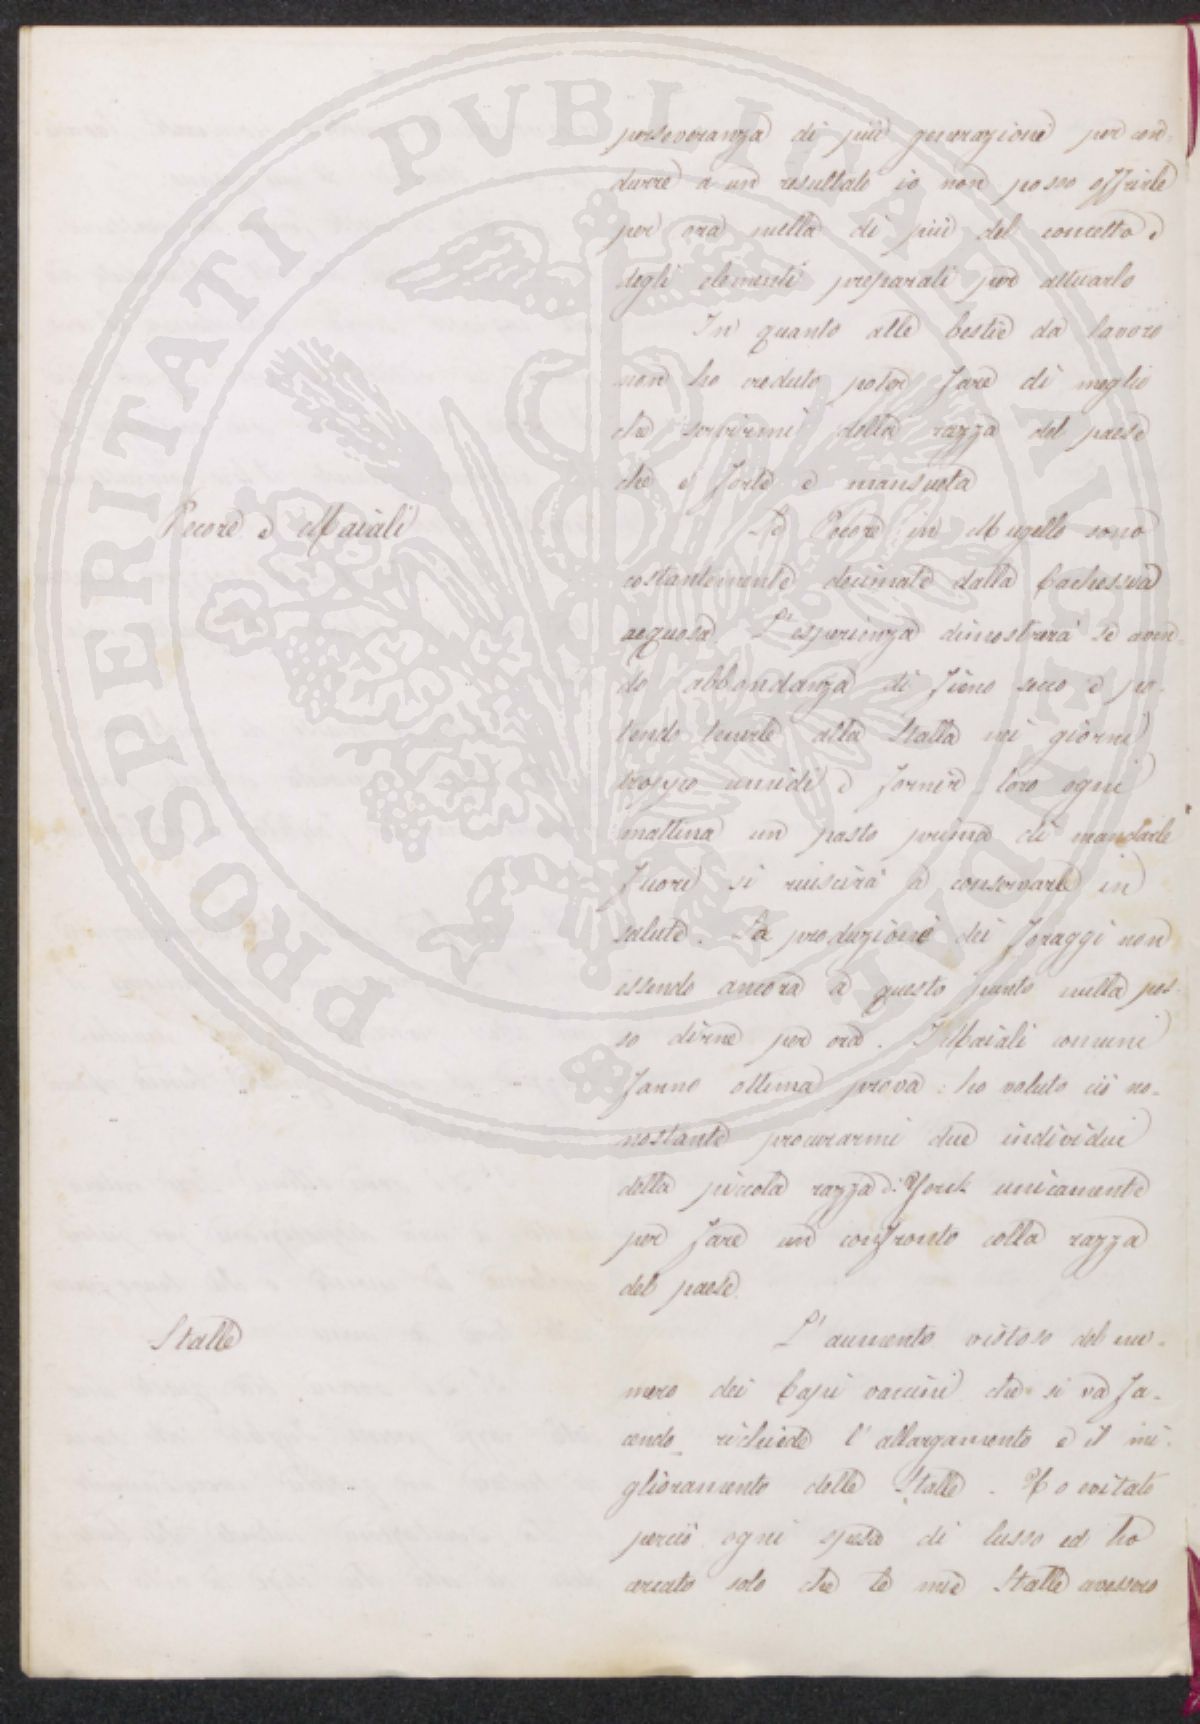 perseveranza di più generazione per con-
durre a un resultato io non posso offrirle
per ora nulla di più del concetto e
degli elementi preparati per attuarlo
In quanto alle bestie da lavoro
non ho creduto poter fare di meglio
che servirmi della razza del paese
che è forte e mansueta
Pecore e Maiali
Le Pecore in Mugello sono
costantemente decimate dalla Cachessia
acquosa. L'esperienza dimostrerà se aven-
do abbondanza di fieno secco e po-
tendo tenerle alla Stalla nei giorni
troppo umidi e fornire loro ogni
mattina un pasto prima di mandarle
fuori si riuscirà a conservarle in
salute. La produzione dei foraggi non
essendo ancora a questo punto nulla pos-
so dirne per ora. I Maiali comuni
fanno ottima prova: ho voluto ciò no-
nostante procurarmi due individui
della piccola razza di York unicamente
per fare un confronto colla razza
del paese.
Stalle
L'aumento vistoso del nu-
mero dei Capi vaccini che si va fa-
cendo richiede l'allargamento e il mi-
glioramento delle Stalle. Ho evitato
perciò ogni spesa di lusso ed ho
cercato solo che le mie Stalle avessero
PROSPERITATI PVBLICAE AVGENDAE